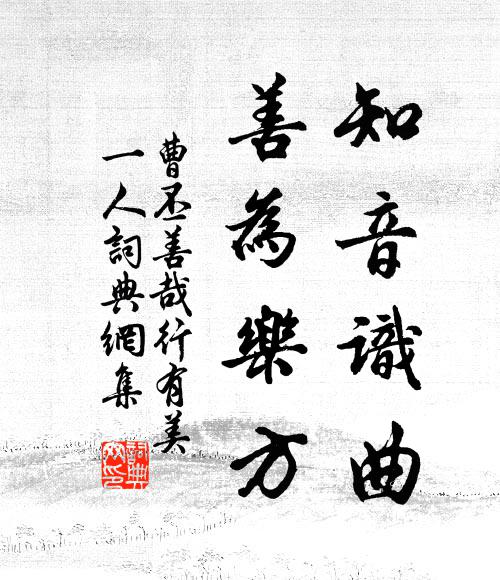 知音識曲
善為樂方
曹丕善哉行有美
一人詞典網集